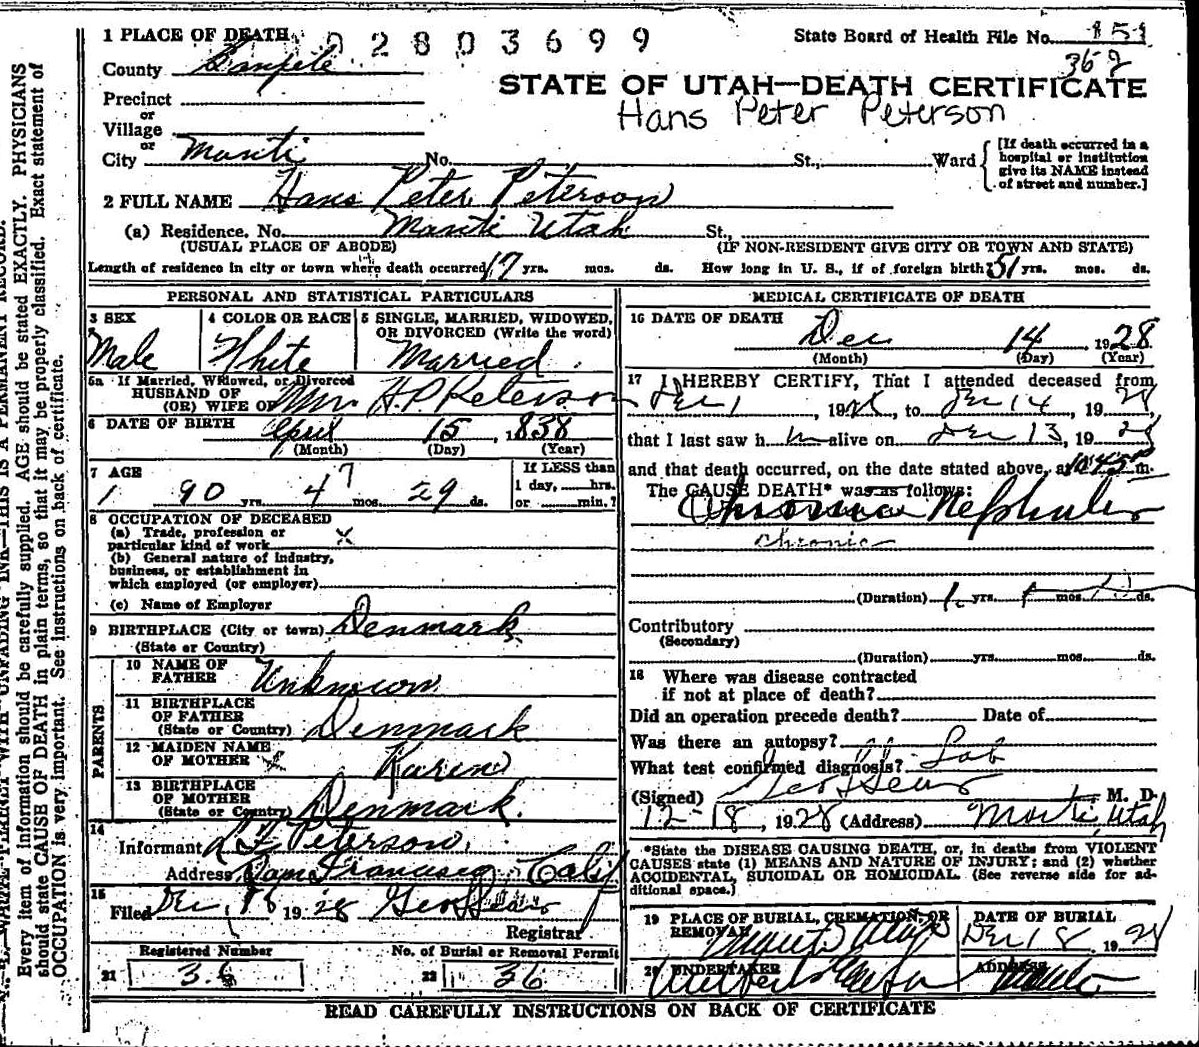 1 PLACE OF DEATH 0 2 8 0 3 6 9 9 State Board of Health File No.
County Sanpete 368
STATE OF UTAH—DEATH CERTIFICATE
Precinct
Hans Peter Peterson
or
Village
or
City Manti No. St., Ward
[If death occurred in a hospital or institution give its NAME instead of street and number.]
2 FULL NAME Hans Peter Peterson
(a) Residence. No. Manti Utah St.,
(USUAL PLACE OF ABODE) (IF NON-RESIDENT GIVE CITY OR TOWN AND STATE)
Length of residence in city or town where death occurred 17 yrs. mos. ds. How long in U. S., if of foreign birth? 51 yrs. mos. ds.
PERSONAL AND STATISTICAL PARTICULARS
3 SEX 4 COLOR OR RACE 5 SINGLE, MARRIED, WIDOWED, OR DIVORCED (Write the word)
Male White Married
5a If Married, Widowed, or Divorced
HUSBAND OF
(OR) WIFE OF Mrs H.P. Peterson
6 DATE OF BIRTH April 15, 1838
(Month) (Day) (Year)
7 AGE If LESS than
1 day, hrs.
90 yrs. 4 7 mos. 29 ds. or min.?
8 OCCUPATION OF DECEASED
(a) Trade, profession or
particular kind of work x
(b) General nature of industry,
business, or establishment in
which employed (or employer)
(c) Name of Employer
9 BIRTHPLACE (City or town) Denmark
(State or Country)
PARENTS
10 NAME OF FATHER Unknown
11 BIRTHPLACE OF FATHER
(State or Country) Denmark
12 MAIDEN NAME OF MOTHER x Karen
13 BIRTHPLACE OF MOTHER
(State or Country) Denmark.
14
Informant Peterson
Address San Francisco Calif
15
Filed Dec 18 1928 Geo
Registrar
Registered Number No. of Burial or Removal Permit
21 22 36
MEDICAL CERTIFICATE OF DEATH
16 DATE OF DEATH
Dec 14 1928
(Month) (Day) (Year)
17 I HEREBY CERTIFY, That I attended deceased from
Dec 1, 1928, to Dec 14, 1928,
that I last saw h im alive on Dec 13, 1928
and that death occurred, on the date stated above, at m.
The CAUSE DEATH* was as follows:
Nephritis
chronic
(Duration) yrs. mos. ds.
Contributory
(Secondary)
(Duration) yrs. mos. ds.
18 Where was disease contracted
if not at place of death?
Did an operation precede death? Date of
Was there an autopsy?
What test confirmed diagnosis? Lab
(Signed) Geo M. D.
12-18, 1928 (Address) Manti, Utah
*State the DISEASE CAUSING DEATH, or, in deaths from VIOLENT
CAUSES state (1) MEANS AND NATURE OF INJURY; and (2) whether
ACCIDENTAL, SUICIDAL OR HOMICIDAL. (See reverse side for ad-
ditional space.)
19 PLACE OF BURIAL, CREMATION, OR REMOVAL DATE OF BURIAL
Dec 18 1928
20 UNDERTAKER ADDRESS
Manti
READ CAREFULLY INSTRUCTIONS ON BACK OF CERTIFICATE
N. B. WRITE PLAINLY WITH UNFADING INK—THIS IS A PERMANENT RECORD.
Every item of information should be carefully supplied. AGE should be stated EXACTLY. PHYSICIANS
should state CAUSE OF DEATH in plain terms, so that it may be properly classified. Exact statement of
OCCUPATION is very important. See instructions on back of certificate.